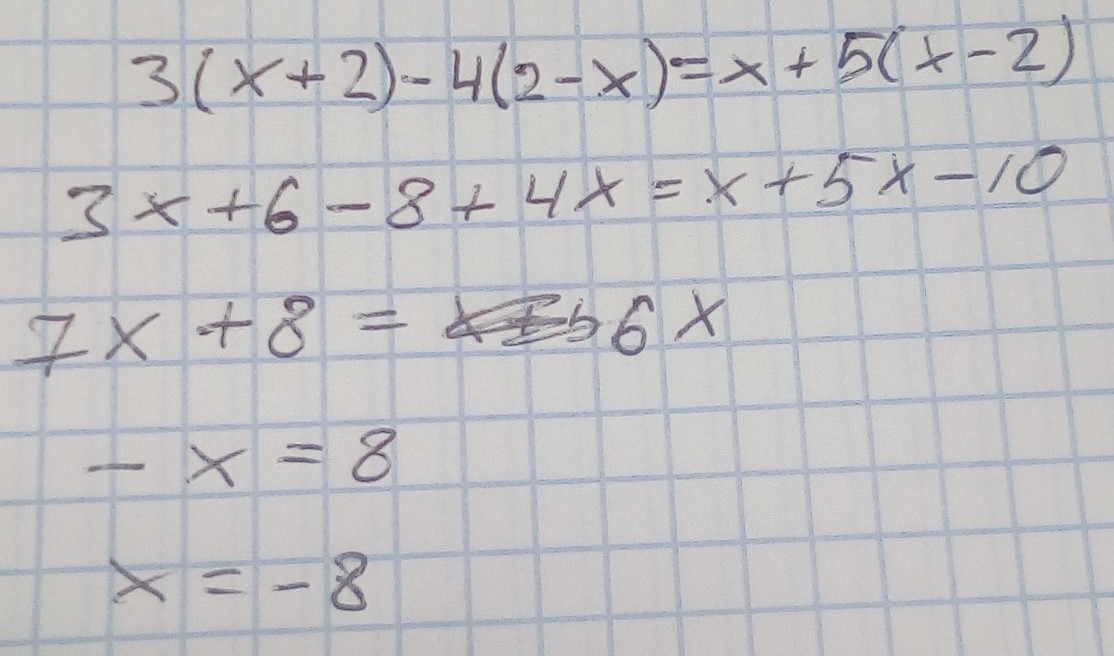 3(x+2)-4(2-x)=x+5(x-2)
3x+6-8+4x=x+5x-10
7x+8=6x
-x=8
x=-8